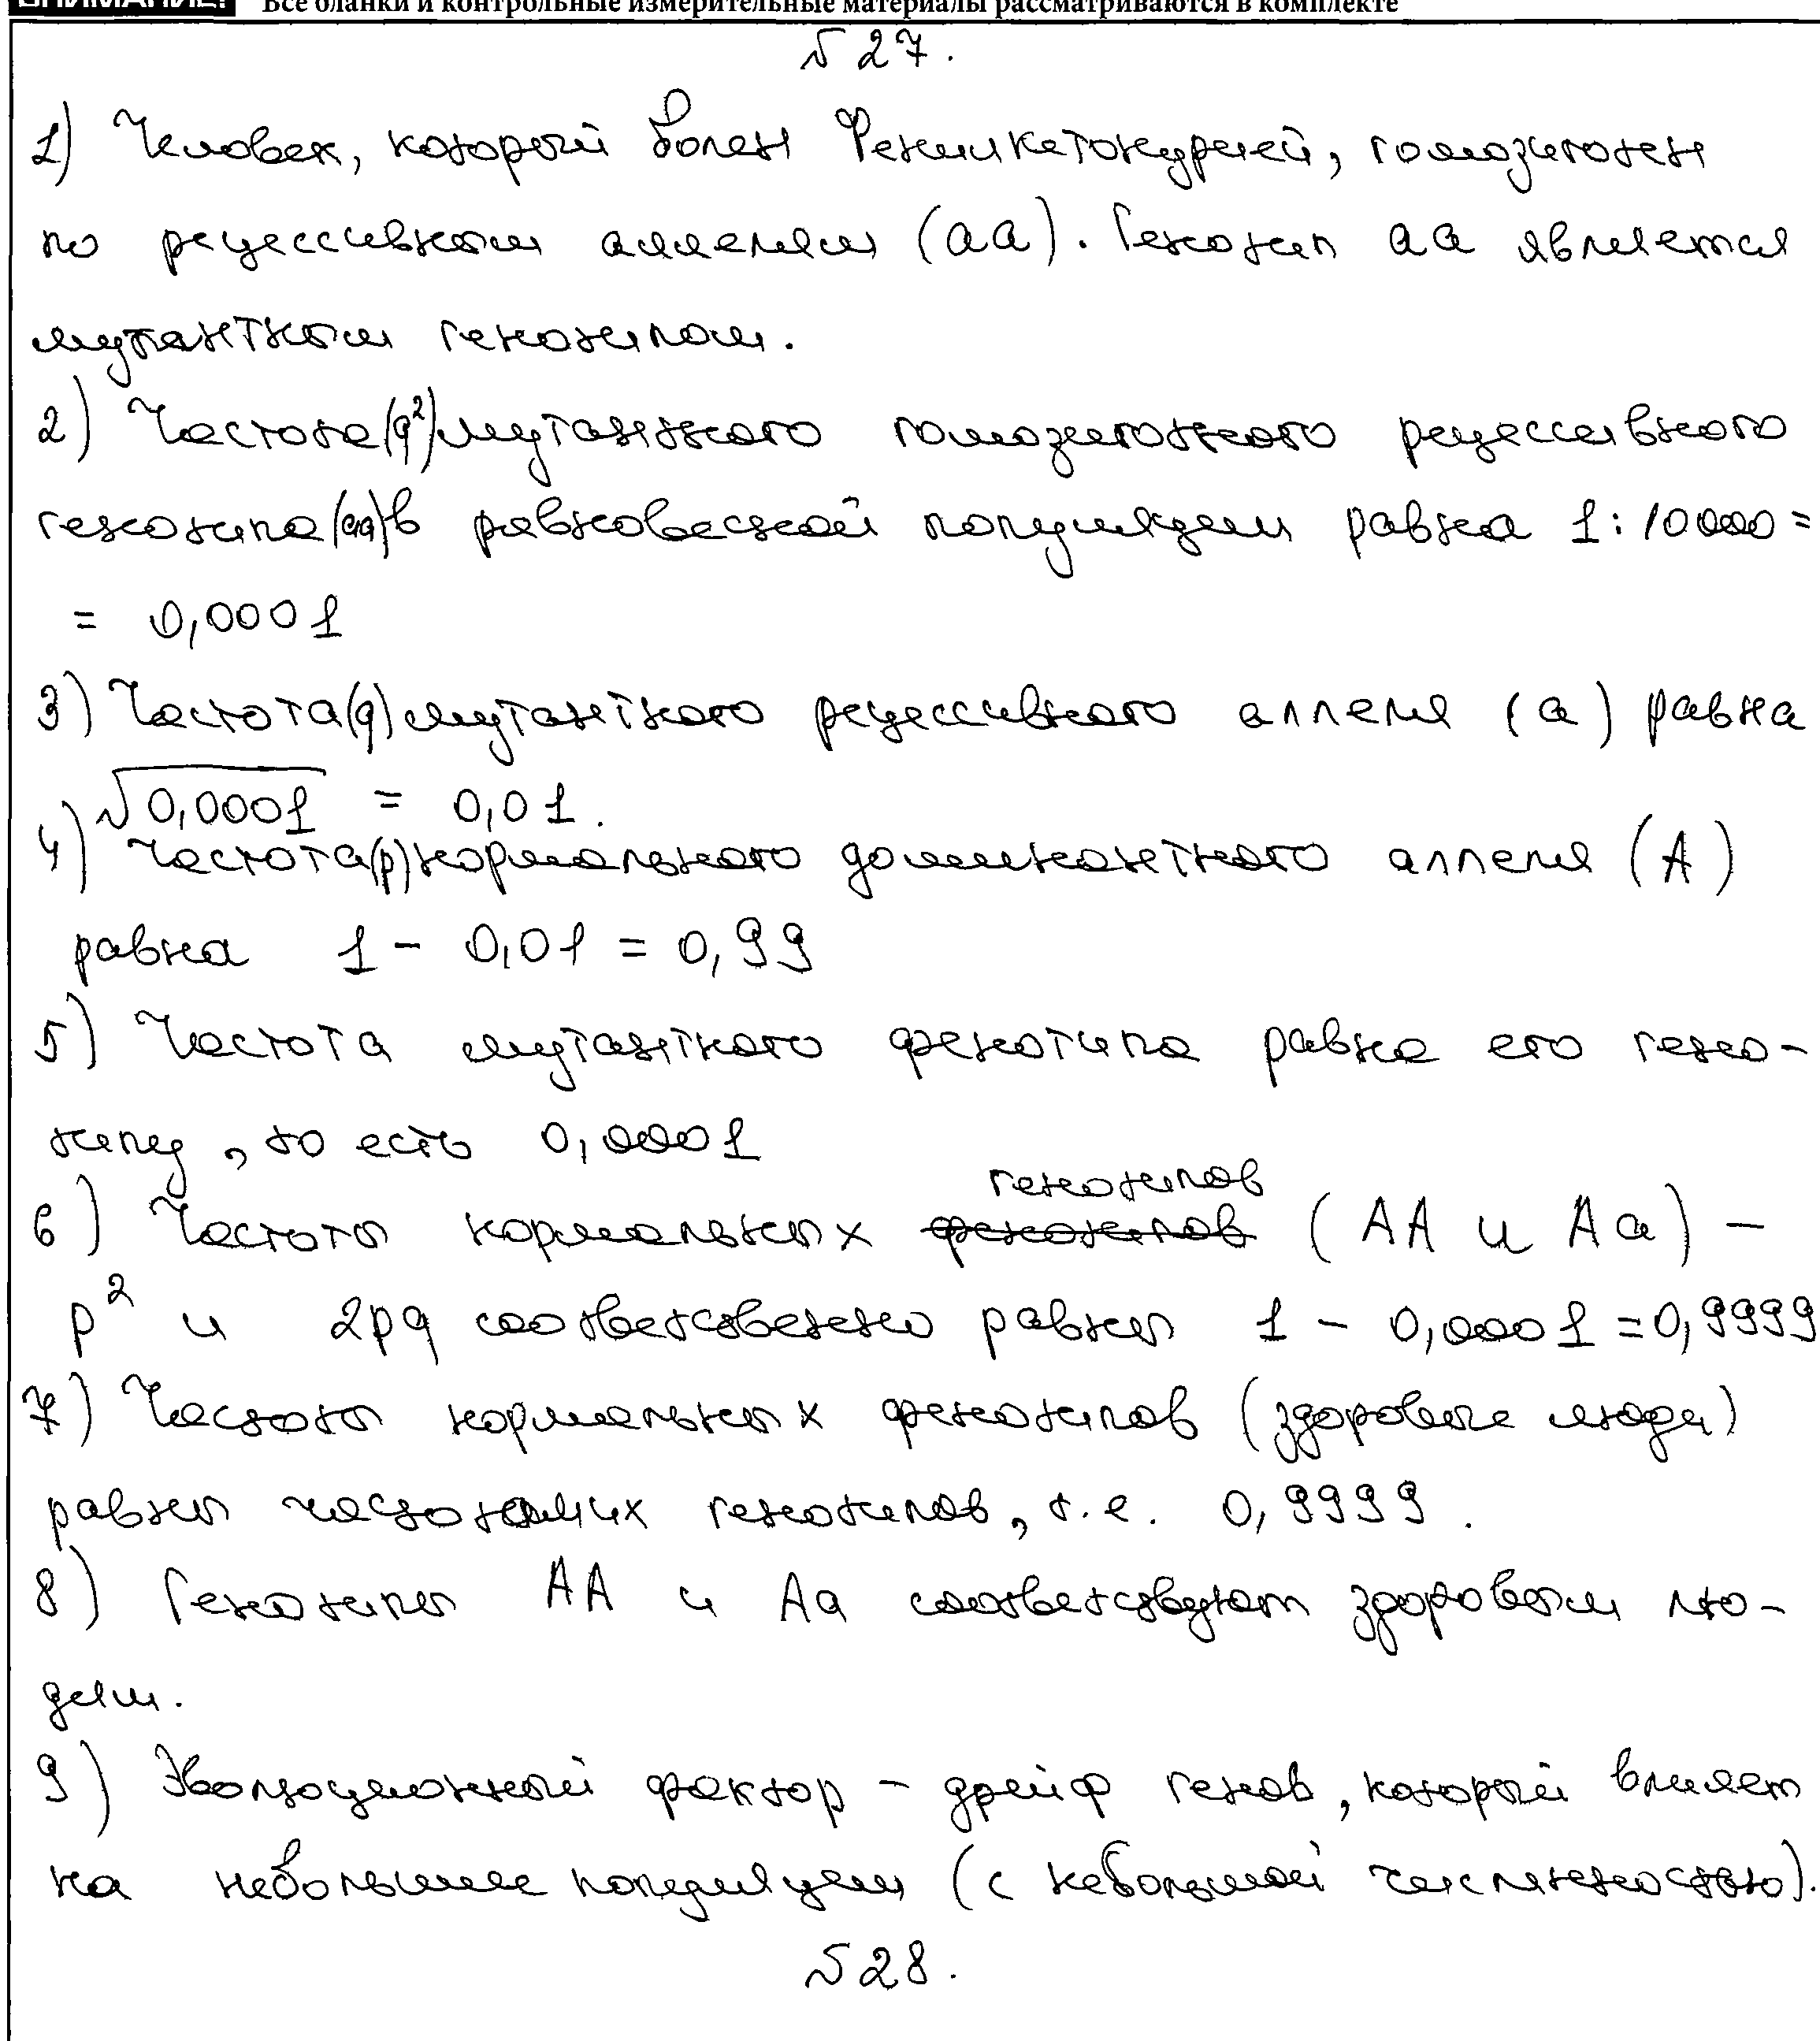 Все бланки и контрольные измерительные материалы рассматриваются в комплекте
№ 27.
1) Человек, который болен Фенилкетонурией, гомозиготен
по рецессивным аллелям (аа). Генотип аа является
мутантным генотипом.
2) Частота (q²) мутантного гомозиготного рецессивного
генотипа (аа) в равновесной популяции равна 1:10000 =
= 0,0001
3) Частота (q) мутантного рецессивного аллеля (а) равна
√0,0001 = 0,01.
4) Частота (p) нормального доминантного аллеля (А)
равна 1 - 0,01 = 0,99
5) Частота мутантного фенотипа равна его гено-
типу, то есть 0,0001
генотипов
6) Частоты нормальных фенотипов (АА и Аа) –
p² и 2pq соответственно равны 1 - 0,0001 = 0,9999
7) Частоты нормальных фенотипов (здоровые люди)
равны частотам их генотипов, т.е. 0,9999.
8) Генотипы АА и Аа соответствуют здоровым лю-
дям.
9) Эволюционный фактор – дрейф генов, который влияет
на небольшие популяции (с небольшой численностью).
№ 28.